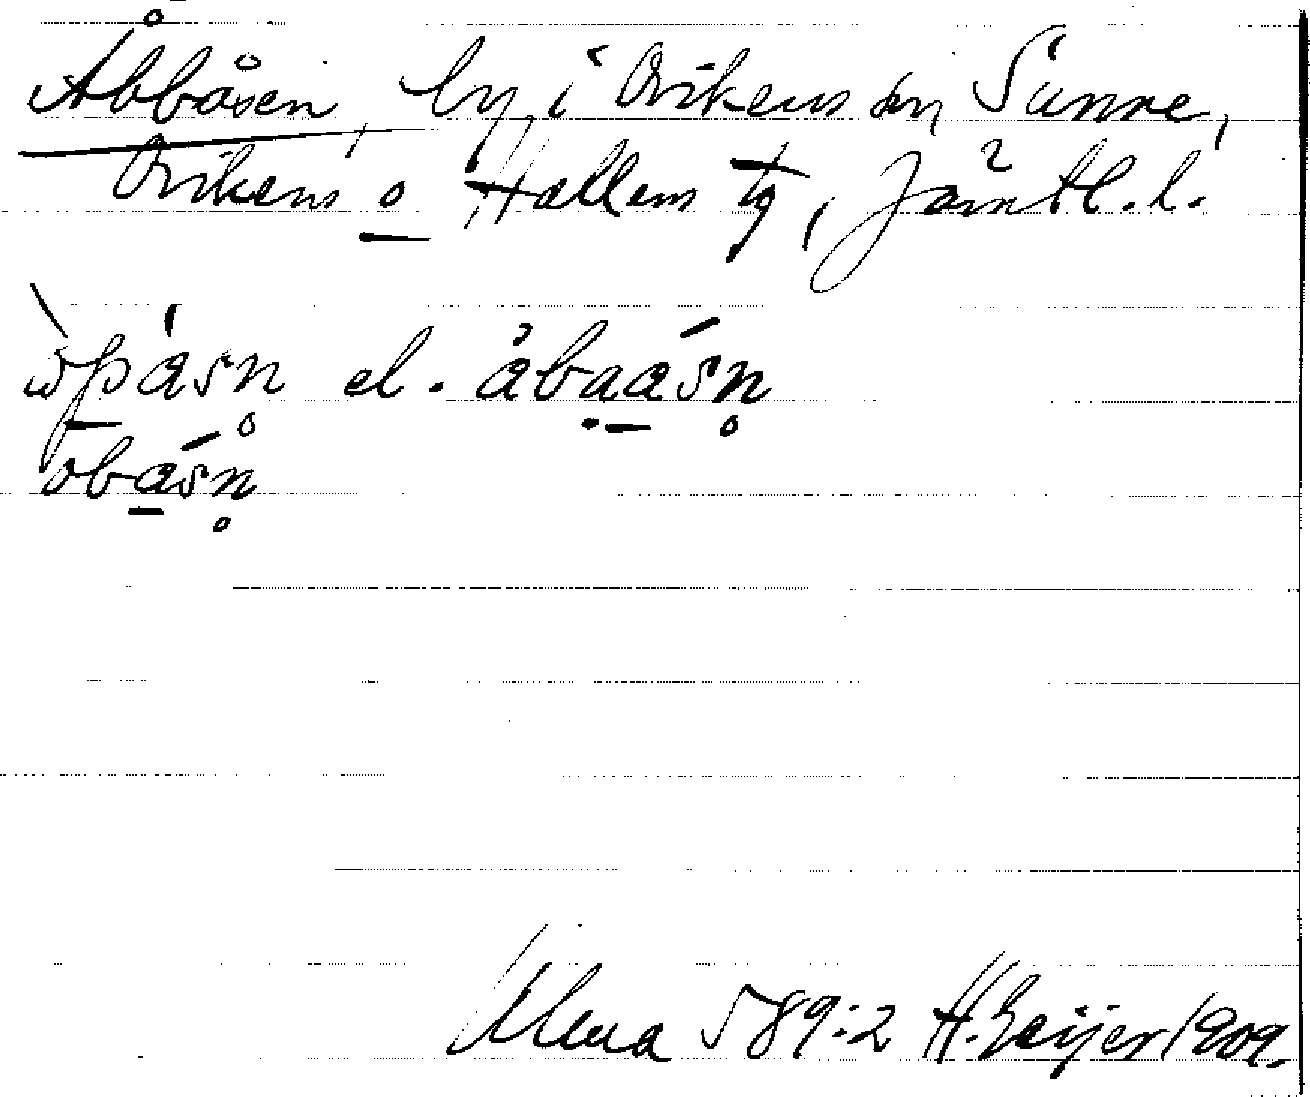 Åbbåsen, by, i Ovikens sn, Sunne,
Ovikens o Hallens tg, Jämtl. l.
el. åbaåsn
obåsn
Ulma 589:2 H. Geijer 1909.